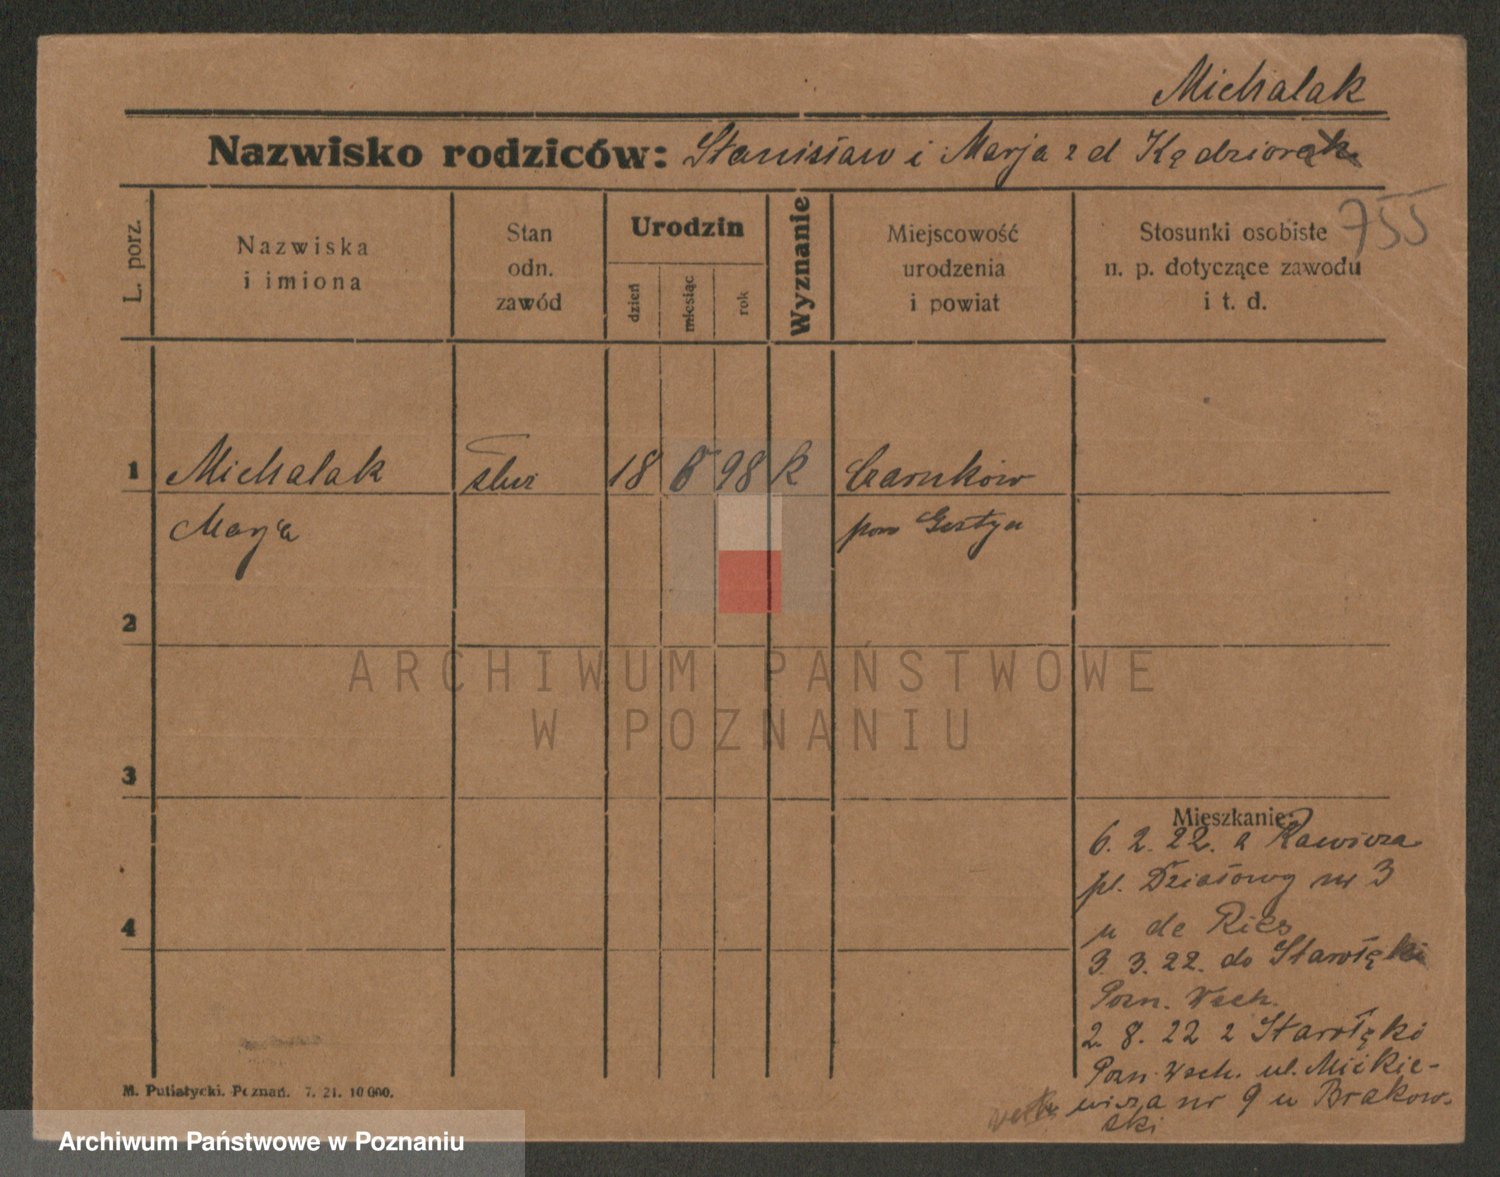 Michalak
Nazwisko rodziców: Stanisław i Marja z d Kędziora
755
L. porz.
Nazwiska
i imiona
Stan
odn.
zawód
Urodzin
dzień
miesiąc
rok
Wyznanie
Miejscowość
urodzenia
i powiat
Stosunki osobiste
n. p. dotyczące zawodu
i t. d.
1 Michalak służ 18 98 k Czarnków
Marja pow Gostyń
2
3
4
Mieszkanie:
6. 2. 22. z Rawicza
pl. Działowy nr 3
u de Ries
3. 3. 22. do Starołęki
Pozn. Wsch.
2. 8. 22 z Starołęki
Pozn. Wsch. ul. Mickie-
wicza nr 9 u Brakow-
ski
M. Putiatycki. Poznań. 7. 21. 10 000.
ARCHIWUM PAŃSTWOWE
W POZNANIU
Archiwum Państwowe w Poznaniu